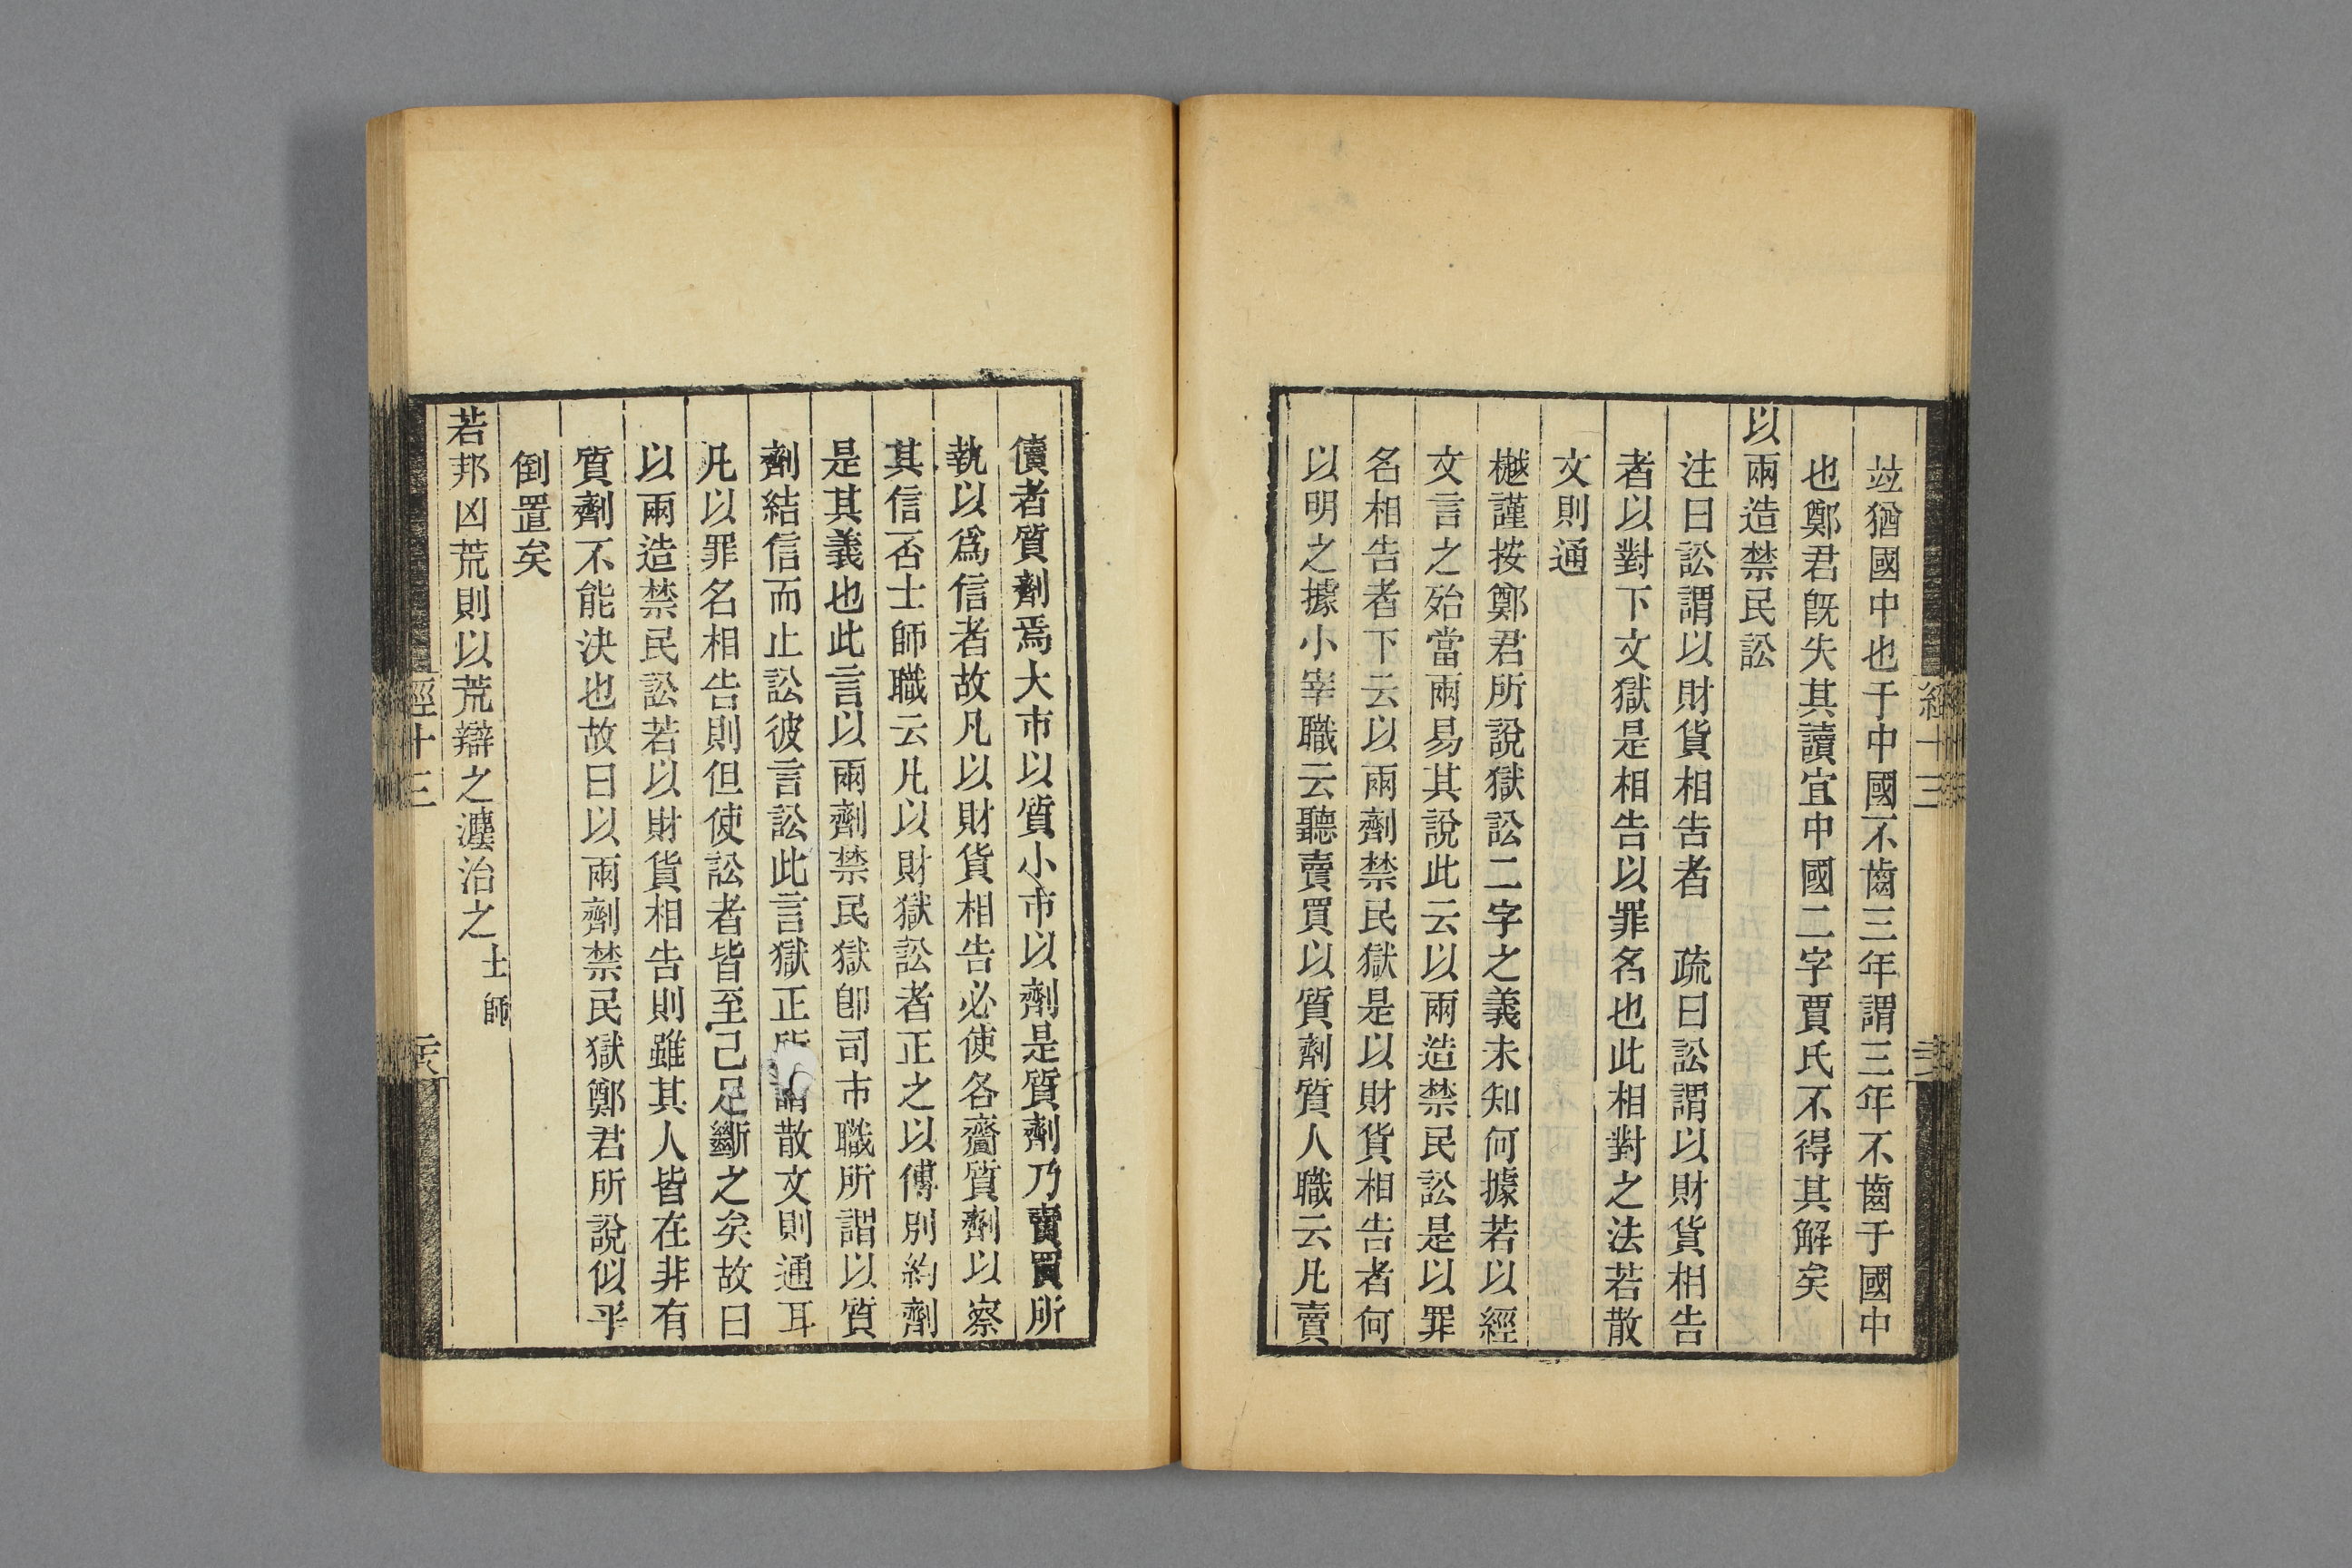 竝猶國中也于中國不齒三年謂三年不齒于國中
也鄭君旣失其讀宜中國二字賈氏不得其解矣
以兩造禁民訟
注曰訟謂以財貨相告者　疏曰訟謂以財貨相告
者以對下文獄是相告以罪名也此相對之法若散
文則通
樾謹按鄭君所說獄訟二字之義未知何據若以經
文言之殆當兩易其說此云以兩造禁民訟是以罪
名相告者下云以兩劑禁民獄是以財貨相告者何
以明之據小宰職云聽賣買以質劑質人職云凡賣
儥者質劑焉大市以質小市以劑是質劑乃賣買所
執以爲信者故凡以財貨相告必使各齎質劑以察
其信否士師職云凡以財獄訟者正之以傅別約劑
是其義也此言以兩劑禁民獄卽司市職所謂以質
劑結信而止訟彼言訟此言獄正所謂散文則通耳
凡以罪名相告則但使訟者皆至己足斷之矣故曰
以兩造禁民訟若以財貨相告則雖其人皆在非有
質劑不能決也故曰以兩劑禁民獄鄭君所說似乎
倒置矣
若邦凶荒則以荒辯之灋治之士師
經十三